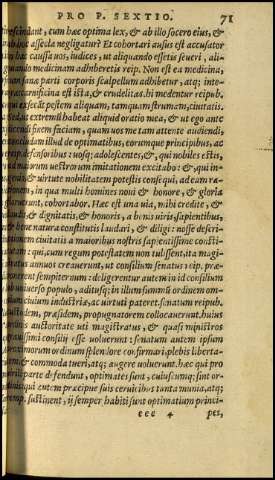 PRO P. SEXTIO. 71
scindant, cum hæc optima lex, & ab illo socero eius, &
hoc assecla negligatur? Et cohortari ausus est accusator
in hac caussa uos, iudices, ut aliquando essetis seueri, ali-
quando medicinam adhiberetis reip. Non est ea medicina,
parti corporis scalpellum adhibetur, atq; inte-
carnificina est ista, & crudelitas. hi medentur reipub.
qui exsecant pestem aliquam, tamquam strumam, ciuitatis.
Sed, ut extremū habeat aliquid oratio mea, & ut ego ante
dicendi finem faciam, quam uos me tam attente audiendi,
concludam illud de optimatibus, eorumque principibus, ac
reip. defensoribus: uosq; adolescentes, &, qui nobiles estis,
ad maiorum uestrorum imitationem excitabo: & qui in-
genio, & uirtute nobilitatem potestis consequi, ad eam ra-
tionem, in qua multi homines noui & honore, & gloria
floruerunt, cohortabor. Hæc est una uia, mihi credite, &
laudis, & dignitatis, & honoris, a bonis uiris, sapientibus,
& bene natura constitutis laudari, & diligi: nosse descri-
ptionem ciuitatis a maioribus nostris sapientissime consti-
tutam: qui, cum regum potestatem non tulissent, ita magi-
stratus annuos creauerunt, ut consilium senatus reip. præ-
ponerent sempiternum: deligerentur autem in id consilium
ab uniuerso populo, aditusq; in illum summū ordinem om-
nium ciuium industriæ, ac uirtuti pateret. senatum reipub.
custodem, præsidem, propugnatorem collocauerunt. huius
ordinis auctoritate uti magistratus, & quasi ministros
grauissimi consilij esse uoluerunt: senatum autem ipsum
proximorum ordinum splendore confirmari: plebis liberta-
tem, & commoda tueri, atq; augere uoluerunt. hæc qui pro
uirili parte defendunt, optimates sunt, cuiuscumq; sint or-
dinis. qui autem præcipue suis ceruicibus tanta munia, atq;
remp. sustinent, ij semper habiti sunt optimatium princi-
eee 4 pes,